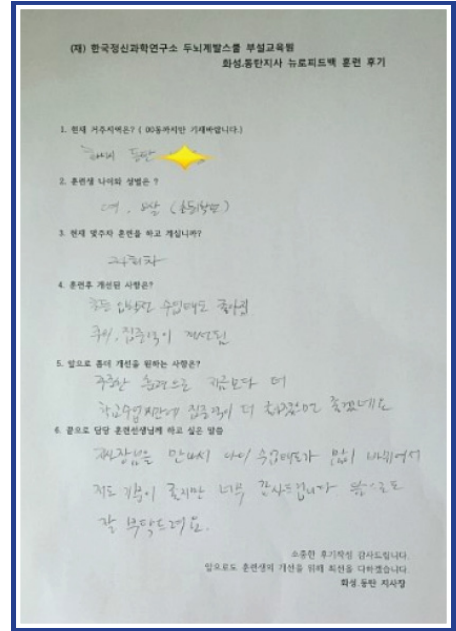 (재) 한국정신과학연구소 두뇌계발스쿨 부설교육원
화성.동탄지사 뉴로피드백 훈련 후기
1. 현재 거주지역은? ( 00동까지만 기재바랍니다.)
동탄
2. 훈련생 나이와 성별은 ?
여, (초등학생)
3. 현재 몇주차 훈련을 하고 계십니까?
4. 훈련후 개선된 사항은?
수업태도 좋아짐
주의, 집중력이 개선됨
5. 앞으로 좀더 개선을 원하는 사항은?
꾸준한 훈련으로 지금보다 더
학교수업시간에 집중력이 더 좋겠네요
6. 끝으로 담당 훈련선생님께 하고 싶은 말씀
지사장님을 만나서 수업태도가 많이 바뀌어서
저도 기분이 좋지만 너무 감사드립니다 앞으로도
잘 부탁드려요.
소중한 후기작성 감사드립니다.
앞으로도 훈련생의 개선을 위해 최선을 다하겠습니다.
화성.동탄 지사장